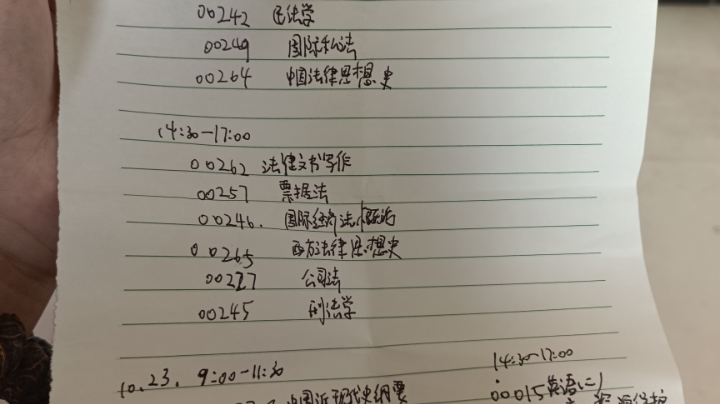 00242 民法学
00249 国际私法
00264 中国法律思想史
14:30-17:00
00262 法律文书写作
00257 票据法
00246. 国际经济法概论
00265 西方法律思想史
00227 公司法
00245 刑法学
10.23. 9:00-11:30 14:30-17:00
中国近现代史纲要 00015英语(二)